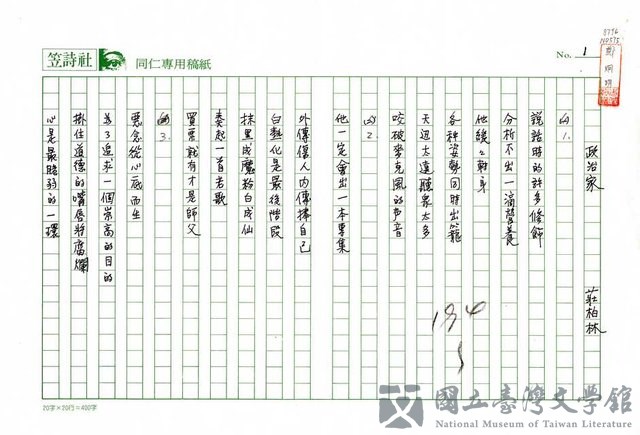 笠詩社 同仁專用稿紙
No. 1
政治家
莊柏林
1.
說話時的許多修飾
分析不出一滴營養
他緩緩轉身
各種姿勢同時出籠
天邊太遠聽衆太多
咬破麥克風的声音
2.
他一定會出一本專集
外傳傷人內傳捧自己
白熱化是最後階段
抹黑成魔粉白成仙
奏起一首哀歌
買票就有才是師父
3.
惡念從心底而生
為了追求一個崇高的目的
掛住道德的嘴唇將腐爛
心是最脆弱的一環
194
20字×20行=400字
國立臺灣文學館
National Museum of Taiwan Literature